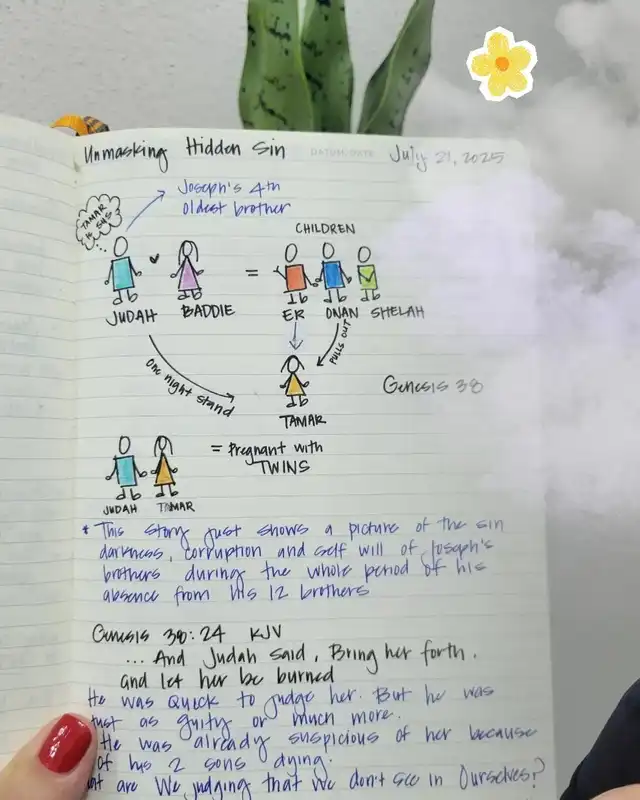 Unmasking Hidden Sin
DATUM/DATE
July 21, 2025
Joseph's 4th
oldest brother
TAMAR
IS SUS
CHILDREN
=
JUDAH
BADDIE
ER
ONAN
SHELAH
PULLS OUT
one night stand
Genesis 38
TAMAR
= Pregnant with
TWINS
JUDAH
TAMAR
* This story just shows a picture of the sin
darkness, corruption and self will of Joseph's
brothers during the whole period of his
absence from his 12 brothers
Genesis 38:24 KJV
... And Judah said, Bring her forth.
and let her be burned
He was quick to judge her. But he was
just as guity or much more.
He was already suspicious of her because
of his 2 sons dying.
are we judging that we don't see in Ourselves?